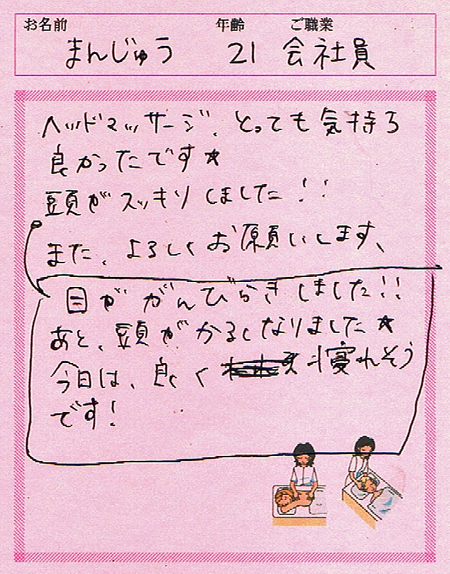 お名前 年齢 ご職業
まんじゅう 21 会社員
ヘッドマッサージ、とっても気持ち
良かったです★
頭がスッキリしました!!
また、よろしくお願いします、
目ががんびらきしました!!
あと、頭がかるくなりました★
今日は、良く寝れそう
です!